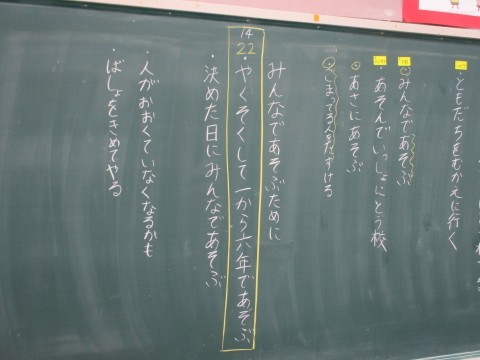 ・ともだちをむかえに行く
・みんなであそぶ
・あそんでいっしょにとう校
・あさにあそぶ
・こまってる人をたすける
みんなであそぶために
14
22
・やくそくして一から六年であそぶ
・決めた日にみんなであそぶ
・人がおおくていなくなるかも
・ばしょをきめてやる